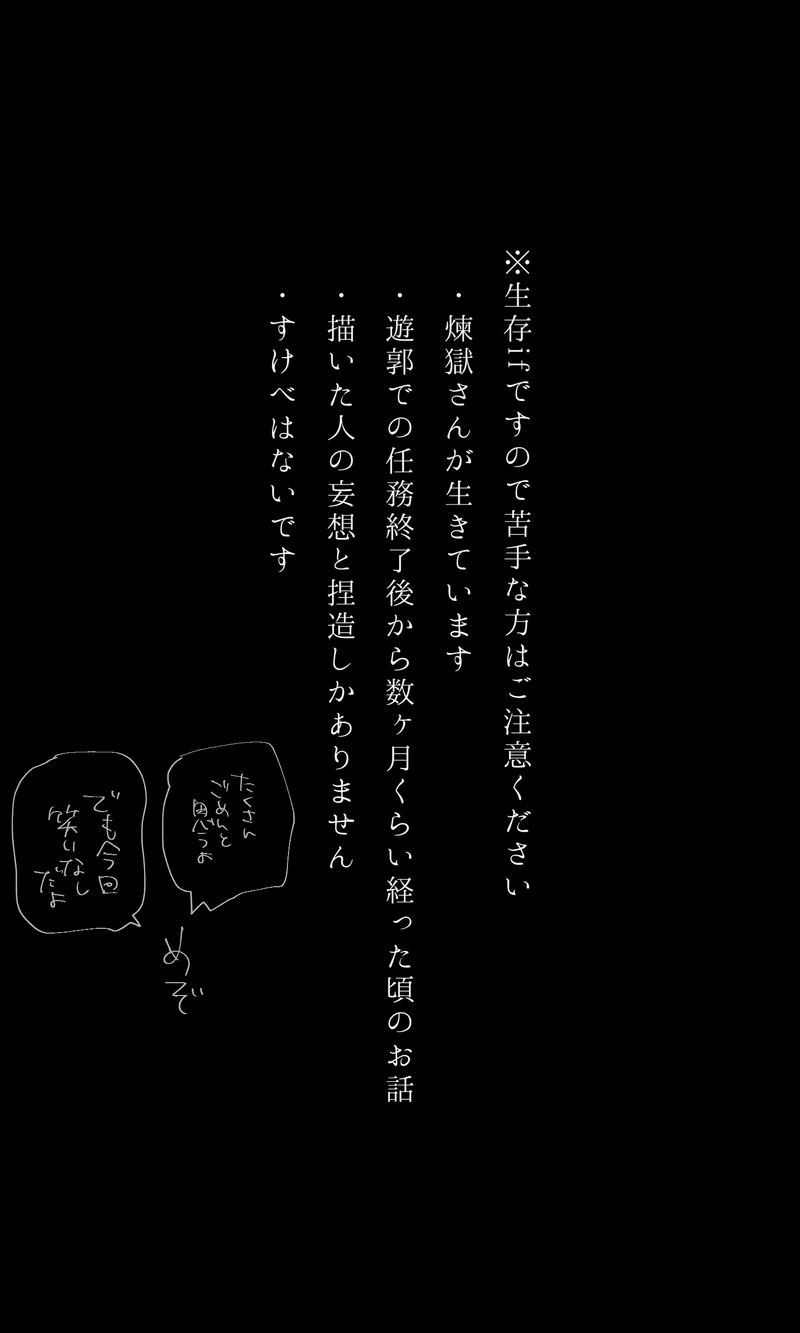 ※生存ifですので苦手な方はご注意ください
・煉獄さんが生きています
・遊郭での任務終了後から数ヶ月くらい経った頃のお話
・描いた人の妄想と捏造しかありません
・すけべはないです
たくさん
ごめんと
思うよ
でも今回
笑いなし
だよ
めぞ